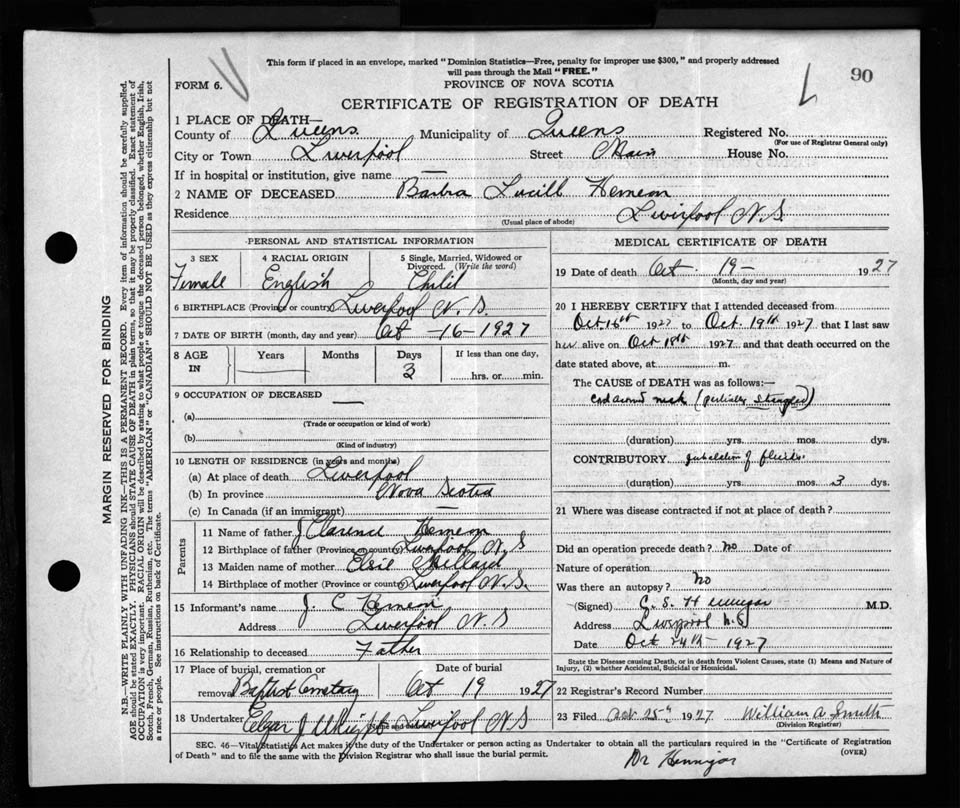 This form if placed in an envelope, marked "Dominion Statistics—Free, penalty for improper use $300," and properly addressed
will pass through the Mail "FREE."
FORM 6.
PROVINCE OF NOVA SCOTIA
90
CERTIFICATE OF REGISTRATION OF DEATH
1 PLACE OF DEATH—
County of Queens Municipality of Queens Registered No.
(For use of Registrar General only)
City or Town Liverpool Street Main House No.
If in hospital or institution, give name —
2 NAME OF DECEASED Barbra Lucill Hemeon
Residence Liverpool N.S
(Usual place of abode)
PERSONAL AND STATISTICAL INFORMATION
3 SEX 4 RACIAL ORIGIN 5 Single, Married, Widowed or
Divorced. (Write the word)
Female English Child
6 BIRTHPLACE (Province or country) Liverpool N.S.
7 DATE OF BIRTH (month, day and year) Oct -16-1927
8 AGE IN Years Months Days If less than one day,
3 hrs. or min.
9 OCCUPATION OF DECEASED —
(a)
(Trade or occupation or kind of work)
(b)
(Kind of industry)
10 LENGTH OF RESIDENCE (in years and months)
(a) At place of death Liverpool
(b) In province Nova Scotia
(c) In Canada (if an immigrant) —
Parents
11 Name of father J Clarence Hemeon
12 Birthplace of father (Province or country) Liverpool N S
13 Maiden name of mother Elsie
14 Birthplace of mother (Province or country) Liverpool N.S.
15 Informant's name J. C Hemeon
Address Liverpool N S
16 Relationship to deceased Father
17 Place of burial, cremation or Date of burial
removal Baptist Cemetary Oct 19 1927
18 Undertaker J Liverpool N S
MEDICAL CERTIFICATE OF DEATH
19 Date of death Oct. 19- 1927
(Month, day and year)
20 I HEREBY CERTIFY that I attended deceased from
Oct 16th 1927 to Oct. 19th 1927 that I last saw
her alive on Oct 18th 1927 and that death occurred on the
date stated above, at m.
The CAUSE of DEATH was as follows:—
cord around neck (partially strangled)
(duration) yrs. mos. dys.
CONTRIBUTORY of fluids
(duration) yrs. mos. 3 dys.
21 Where was disease contracted if not at place of death?
Did an operation precede death? No Date of
Nature of operation
Was there an autopsy? No
(Signed) C. S. Hennigar M.D.
Address Liverpool N.S
Date Oct 24th- 1927
State the Disease causing Death, or in death from Violent Causes, state (1) Means and Nature of
Injury, (2) whether Accidental, Suicidal or Homicidal.
22 Registrar's Record Number
23 Filed Oct 25th 1927 William A Smith
(Division Registrar)
SEC. 46—Vital Statistics Act makes it the duty of the Undertaker or person acting as Undertaker to obtain all the particulars required in the "Certificate of Registration
of Death" and to file the same with the Division Registrar who shall issue the burial permit.
(OVER)
Dr Hennigar
MARGIN RESERVED FOR BINDING
N.B.—WRITE PLAINLY WITH UNFADING INK—THIS IS A PERMANENT RECORD. Every item of information should be carefully supplied.
AGE should be stated EXACTLY. PHYSICIANS should STATE CAUSE OF DEATH in plain terms, so that it may be properly classified. Exact statement of
OCCUPATION is very important. RACIAL ORIGIN will be described by stating to what people or tongue the deceased person belonged, whether English, Irish,
Scotch, French, German, Russian, Ruthenian, etc. The terms "AMERICAN" or "CANADIAN" SHOULD NOT BE USED as they express citizenship but not
a race or people. See instructions on back of Certificate.